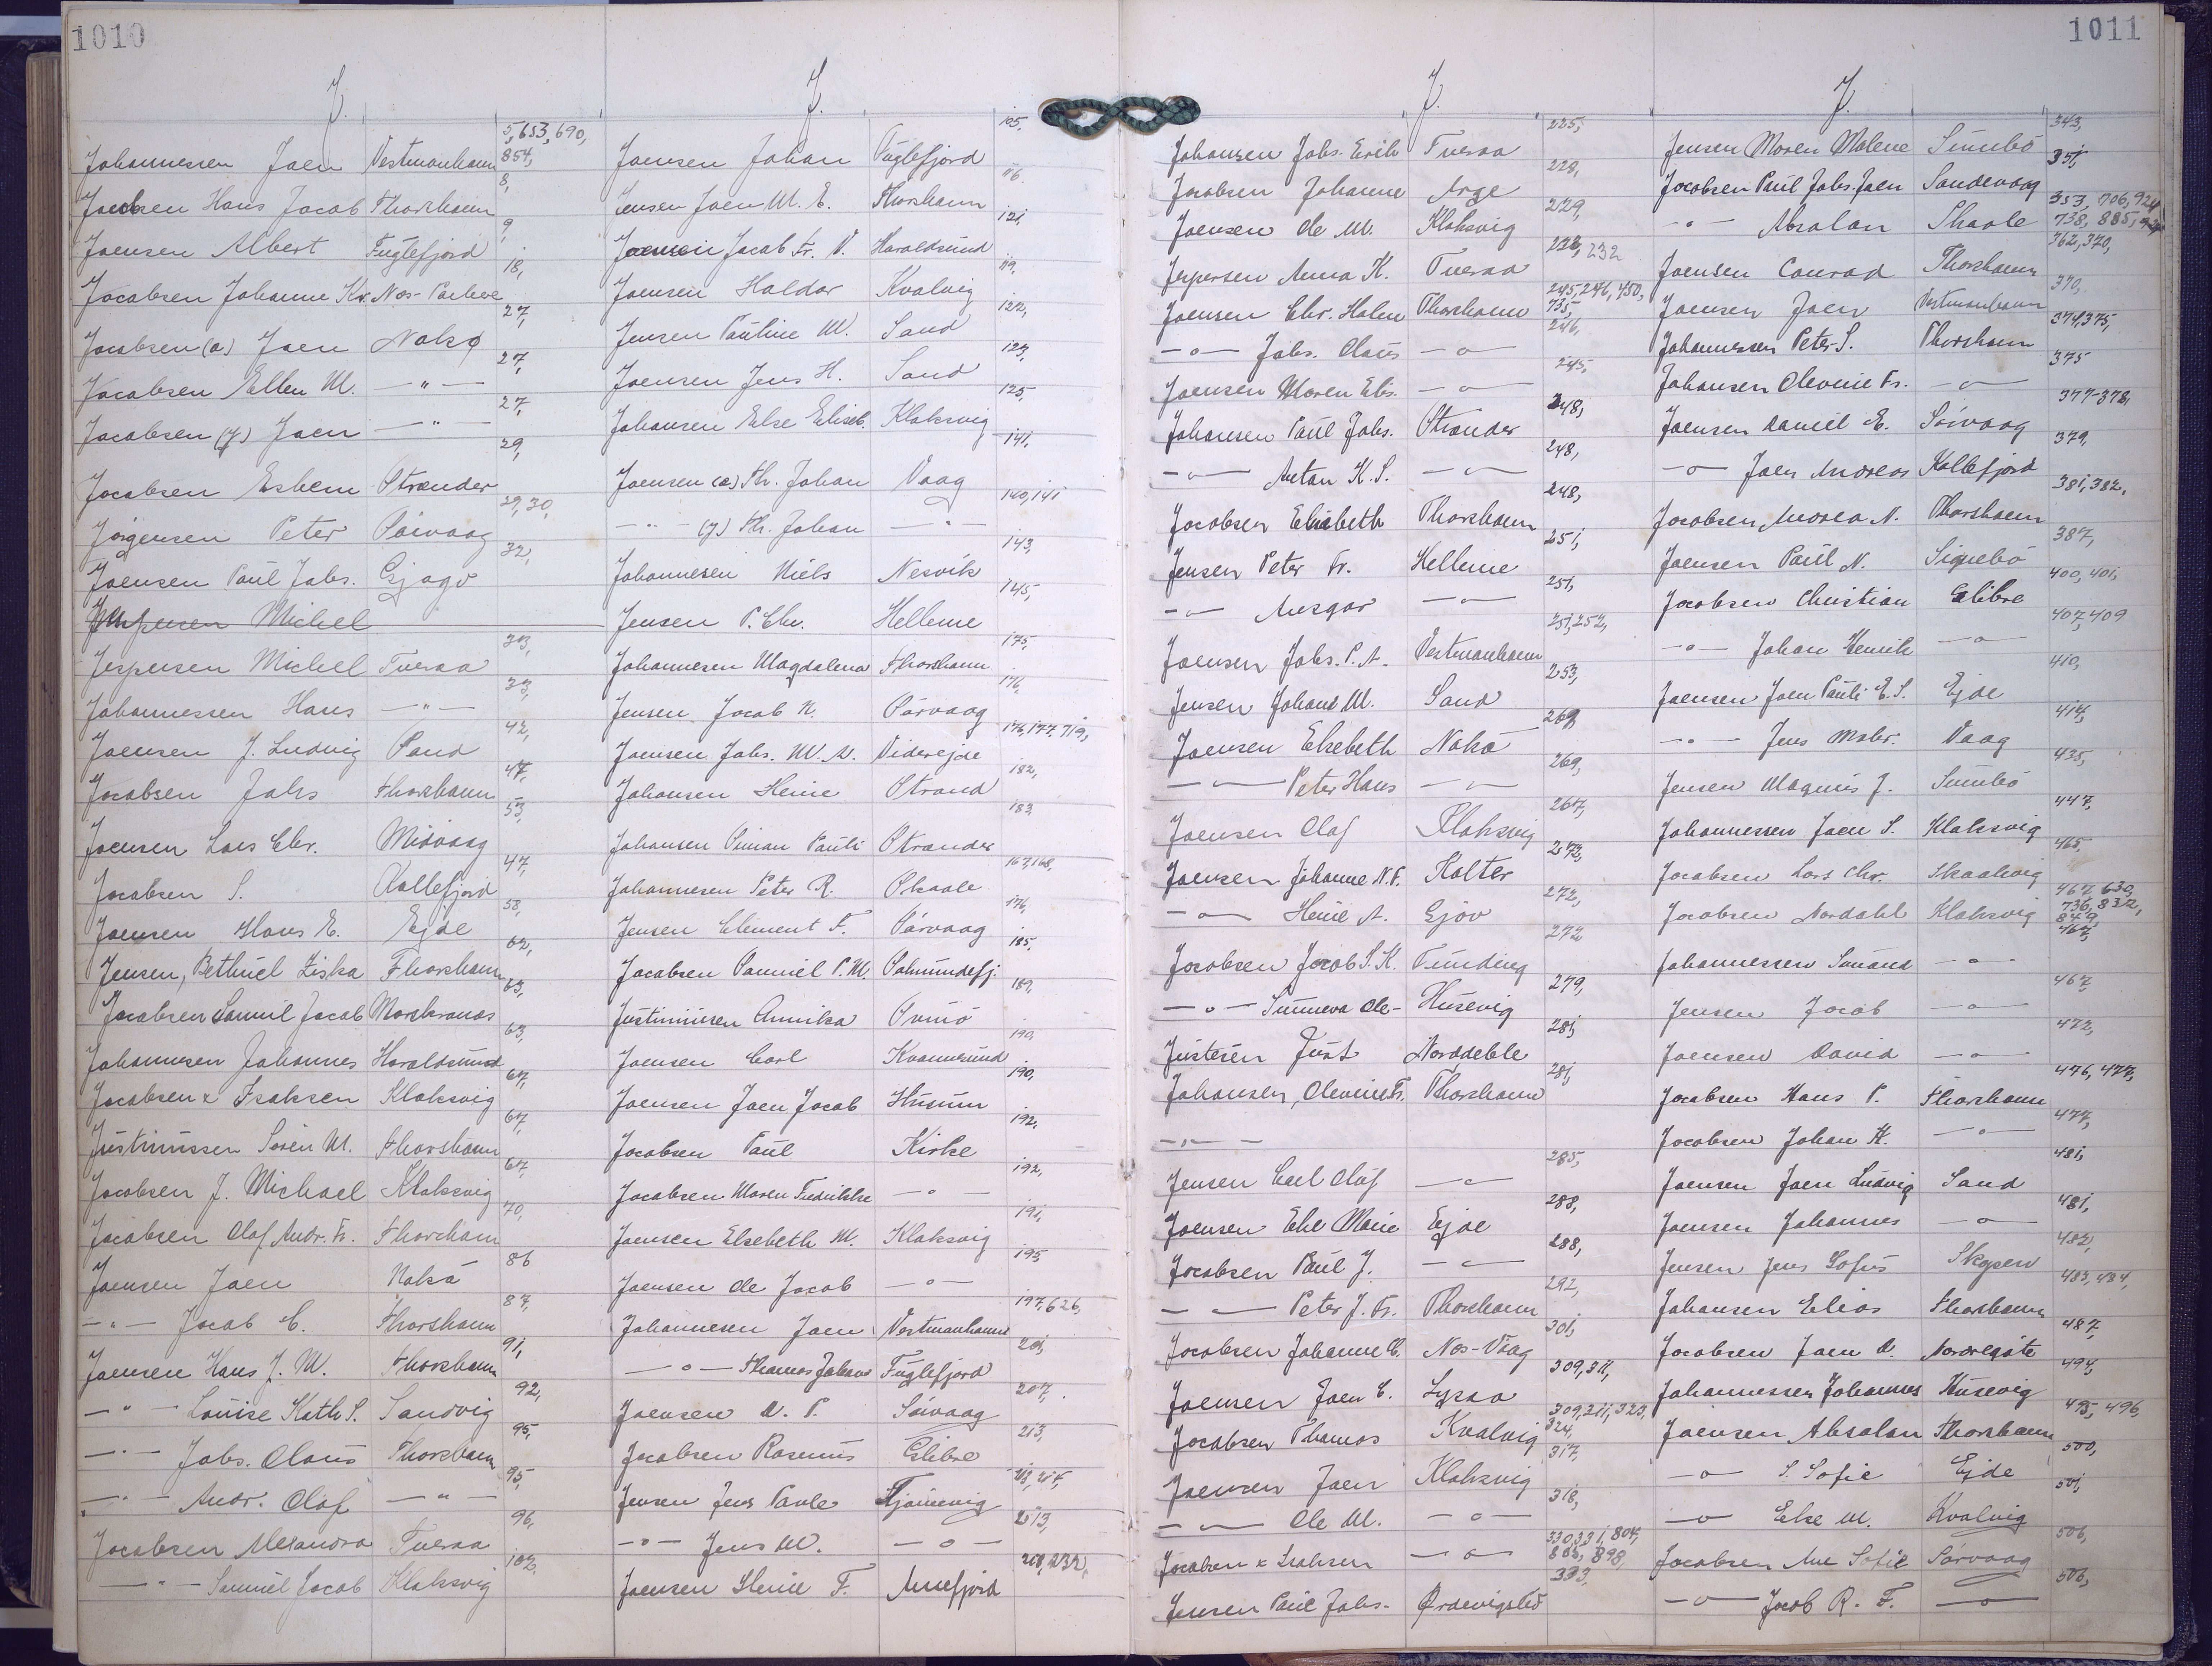 1010
J.
Johannessen Joen Vestmanhavn 5, 653, 690, 854,
Jacobsen Hans Jacob Thorshavn 8,
Joensen Albert Fuglefjord 9,
Jacobsen Johanne Kr. Nos- 18,
Jacobsen (a) Joen Nolsø 27,
Jacobsen Ellen M. —"— 27,
Jacobsen (y) Joen —"— 27,
Jacobsen Esbern Strender 29,
Jörgensen Peter Sörvaag 29, 30,
Joensen Paul Johs. Gjogv 32,
Jespersen Michel
Jespersen Michel Tveraa 33,
Johannessen Hans —"— 33,
Joensen J. Ludvig Sand 42,
Jacobsen Johs Thorshavn 47,
Joensen Lars Chr. Midvaag 53,
Jacobsen S. Kollefjord 47,
Joensen Hans E. Ejde 58,
Jensen, Bethuel Ziska Thorshavn 62,
Jacobsen Samuel Jacob Morskranes 63,
Johannesen Johannes Haraldsund 63,
Jacobsen & Isaksen Klaksvig 67,
Justinussen Sören M. Thorshavn 67,
Jacobsen J. Michael Klaksvig 67,
Jacobsen Olaf Andr. Fr. Thorshavn 70,
Joensen Joen Nolsö 86
—"— Jacob C. Thorshavn 87,
Joensen Hans J. M. Thorshavn 91,
—"— Louise Kath S. Sandvig 92,
—"— Johs. Olaus Thorshavn 95,
—"— Andr. Olaf —"— 95,
Jacobsen Alexandra Tveraa 96,
—"— Samuel Jacob Klaksvig 102,
J.
Joensen Johan Fuglefjord 105,
Jensen Joen M. E. Thorshavn 116
Joensen Jacob Fr. V. Haraldsund 121,
Joensen Haldor Kvalvig 119,
Jensen Pauline M. Sand 122,
Joensen Jens H. Sand 123,
Johansen Else Elisab. Klaksvig 125,
Joensen (æ) Th. Johan Vaag 141,
—"— (y) Th. Johan —"— 140, 141
Johannesen Niels Nesvik 143,
Jensen P. Chr. Hellerne 145,
Johannesen Magdalena Thorshavn 175,
Jensen Jacob N. Sörvaag 176,
Joensen Johs. M. N. Viderejde 176, 177, 719,
Johansen Heine Strand 182,
Johansen Simon Pauli Strender 183
Johannesen Peter R. Skaale 167, 168,
Jensen Clement F. Sörvaag 176,
Jacobsen Samuel P. M. Salmundefj. 185,
Justinusen Annika Svinö 189,
Joensen Carl Kvannesund 190,
Joensen Joen Jacob Husum 190,
Jacobsen Paul Kirke 192,
Jacobsen Maren Fredrikke —"— 192,
Joensen Elsebeth M. Klaksvig 191,
Joensen Ole Jacob —"— 195
Johannesen Joen Vestmanhavn 197, 626,
—"— Thomas Johans Fuglefjord 201,
Joensen D. P. Sörvaag 207,
Jacobsen Rasmus Glibre 213,
Jensen Jens Paule Tjörnevig 213, 217,
—"— Jens M. —"— 213,
Joensen Heine F. Arnefjord 208, 232,
1011
J.
Johansen Johs. Erik Tveraa 225,
Jacobsen Johanne Arge 228,
Joensen Ole M. Klaksvig 229,
Jespersen Anna K. Tveraa 228, 232
Joensen Chr. Holm Thorshavn 245, 246, 450, 735,
—"— Johs. Olaus —"— 246,
Joensen Maren Elis. —"— 245,
Johansen Paul Johs. Strender 248,
—"— Anton K. S. —"— 248,
Jacobsen Elisabeth Thorshavn 248,
Jensen Peter Fr. Hellerne 251,
—"— Ansgar —"— 251,
Joensen Johs. P. A. Vestmanhavn 251, 252,
Jensen Johans M. Sand 253,
Joensen Elsebeth Nolsö 269,
—"— Peter Hans —"— 269,
Joensen Olaf Klaksvig 267,
Joensen Johanne N. F. Kolter 272,
—"— Heine A. Gjov 272,
Jacobsen Jacob S. K. Funding 272
—"— Sunneva Ole- Husevig 279,
Justesen Just Norddeble 281,
Johansen, Olevine Fr. Thorshavn 281,
—"—
Jensen Carl Olaf —"— 285,
Joensen Else Marie Ejde 288,
Jacobsen Paul J. —"— 288,
—"— Peter J. Fr. Thorshavn 292,
Jacobsen Johanne C. Nos-Vaag 301,
Joensen Joen C. Lyraa 309, 311,
Jacobsen Thomas Kvalvig 309, 311, 323, 324,
Joensen Joen Klaksvig 317,
—"— Ole M. —"— 318,
Jacobsen & Isaksen —"— 330, 331, 804, 805, 898,
Jensen Paul Johs. Ørdevigslid 333,
J.
Jensen Maren Malene Sumbö 343,
Jacobsen Paul Johs. Joen Sandevaag 351,
—"— Absalon Skaale 353, 706, 924 738, 885,
Joensen Conrad Thorshavn 362, 370,
Joensen Joen Vestmanhavn 370,
Johannessen Peter S. Thorshavn 374, 375,
Johansen Olevine Fr. —"— 375
Joensen Daniel E. Sörvaag 377-378,
—"— Joen Andreas Kollefjord 379,
Jacobsen Andrea N. Thorshavn 381, 382,
Joensen Paul N. Signebö 387,
Jacobsen Christian Glibre 400, 401,
—"— Johan Henrik —"— 407, 409
Joensen Joen Pauli E. S. Ejde 410,
—"— Jens Mabr. Vaag 417,
Jensen Magnus J. Sumbö 435,
Johannessen Joen S. Klaksvig 447,
Jacobsen Lars Chr. Skaalevig 465,
Jacobsen Nordahl Klaksvig 467, 630, 736, 832, 849,
Johannessen Simand —"— 467,
Jensen Jacob —"— 467,
Joensen David —"— 472,
Jacobsen Hans P. Thorshavn 476, 477,
Jacobsen Johan K. —"— 477,
Joensen Joen Ludvig Sand 481,
Joensen Johannes —"— 481,
Jensen Jens Sofus Skopen 482,
Johansen Elias Thorshavn 483, 484,
Jacobsen Joen D. Norregöte 487,
Johannessen Johannes Husevig 494,
Joensen Absalon Thorshavn 495, 496,
—"— S. Sofie Ejde 500,
—"— Else M. Kvalvig 501,
Jacobsen Ane Sofie Sörvaag 506,
—"— Jacob R. F. —"— 506,